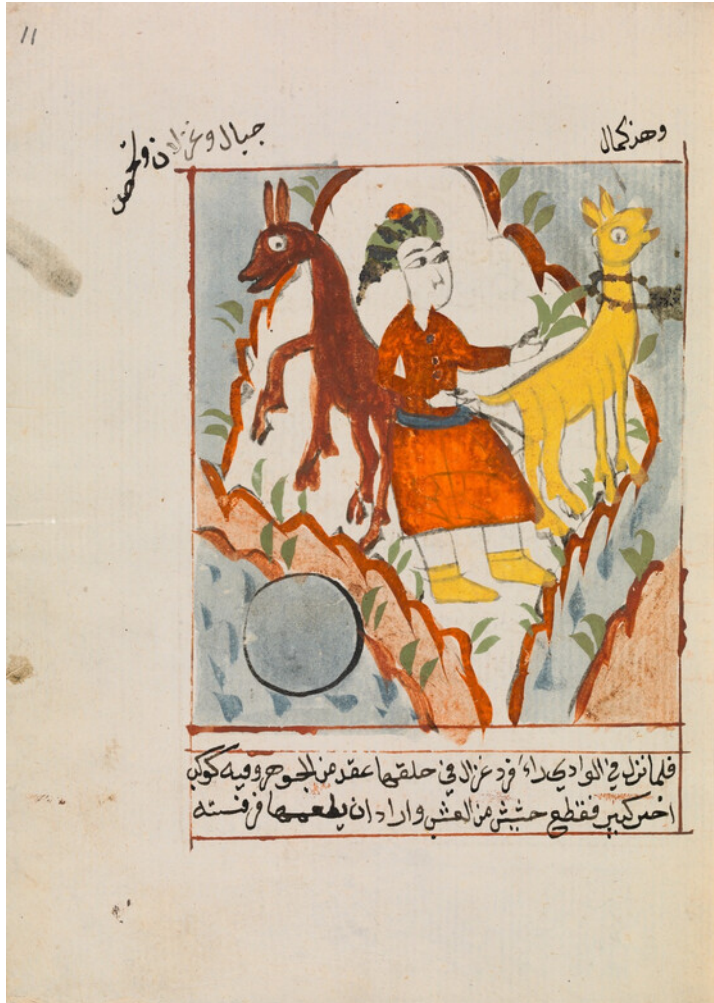 11
وهذ كمال جبال وغزلان
فلما نزل في الوادي راء فرد غزال في حلقها عقد من الجوهر وفيه كوكب
اخضر كبير فقطع حشيش من العشب واراد ان يطعمها فرفسته